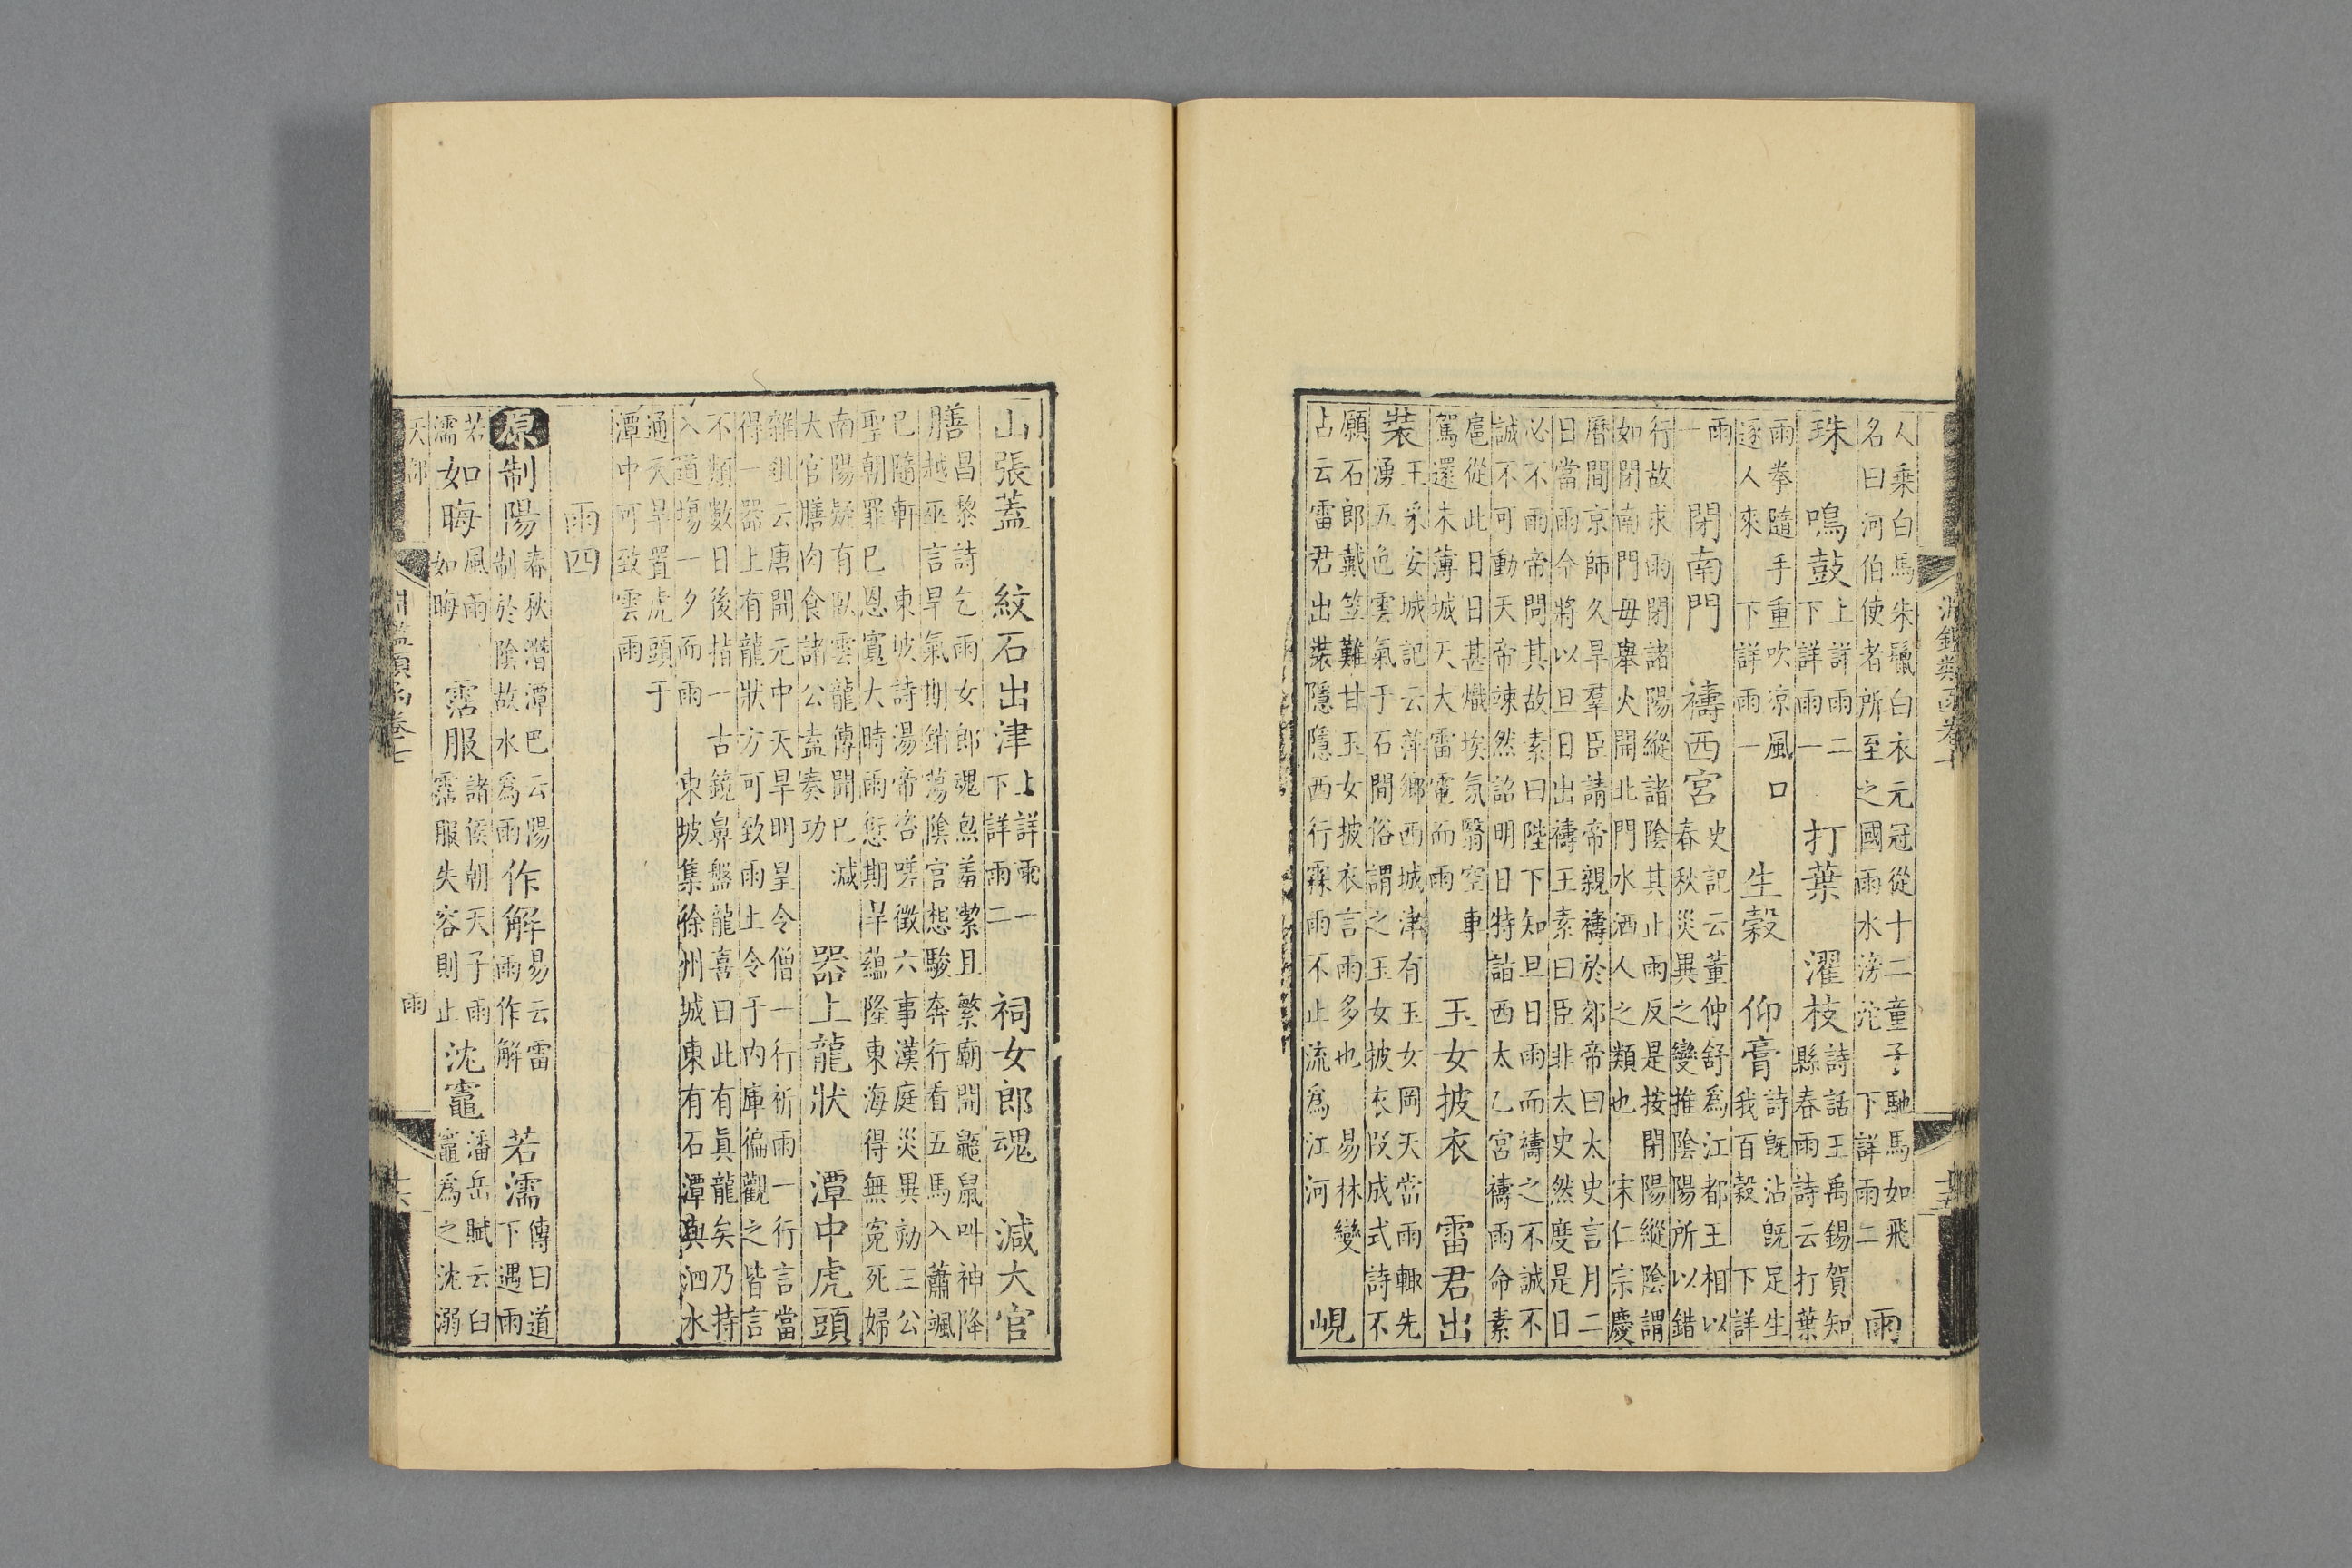 人乘白馬朱鬣白衣元冠從十二童子馳馬如飛
名曰河伯使者所至之國雨水滂沱 下詳雨二 雨
珠 鳴鼓 上詳雨二 下詳雨一 打葉 濯枝 詩話王禹錫賀知
縣春雨詩云打葉
雨拳隨手重吹凉風口
逐人來 下詳雨一 生穀 仰膏 詩旣沾旣足生
我百穀 下詳
雨一 閉南門 禱西宮 史記云董仲舒爲江都王相以
春秋災異之變推陰陽所以錯
行故求雨閉諸陽縱諸陰其止雨反是按閉陽縱陰謂
如閉南門毋舉火開北門水洒人之類也 宋仁宗慶
曆間京師久旱羣臣請帝親禱於郊帝曰太史言月二
日當雨今將以旦日出禱王素曰臣非太史然度是日
必不雨帝問其故素曰陛下知旦日雨而禱之不誠不
誠不可動天帝竦然詔明日特詣西太乙宮禱雨命素
扈從此日日甚熾埃氛翳空 車
駕還未薄城天大雷電而雨 玉女披衣 雷君出
裝 王采安城記云萍鄉西城津有玉女岡天當雨輒先
湧五色雲氣于石間俗謂之玉女披衣叚成式詩不
願石郎戴笠難甘玉女披衣言雨多也 易林變
占云雷君出裝隱隱西行霖雨不止流爲江河 峴
淵鑑類函卷七
十五
山張蓋 紋石出津 上詳雨一 下詳雨二 祠女郎魂 減大官
膳 昌黎詩乞雨女郎魂炰羞潔且繁廟開鼯鼠叫神降
越巫言旱氣期銷蕩陰官想駿奔行看五馬入蕭颯
已隨軒 東坡詩湯帝咨嗟徵六事漢庭災異劾三公
聖朝罪已恩寬大時雨愆期旱蘊隆東海得無寃死婦
南陽疑有臥雲龍傳聞已減
大官膳肉食諸公盍奏功 器上龍狀 潭中虎頭
雜俎云唐開元中天旱明皇令僧一行祈雨一行言當
得一器上有龍狀方可致雨上令于內庫徧觀之皆言
不類數日後指一古鏡鼻盤龍喜曰此有眞龍矣乃持
入道塲一夕而雨 東坡集徐州城東有石潭與泗水
通天旱置虎頭于
潭中可致雲雨
雨四
原 制陽 春秋潛潭巴云陽
制於陰故水爲雨 作解 易云雷
雨作解 若濡 傳曰道
下遇雨
若濡 如晦 風雨
如晦 霑服 諸侯朝天子雨
霑服失容則止 沈竈 潘岳賦云臼
竈爲之沈溺
天部 淵鑑類函卷七 雨 十六